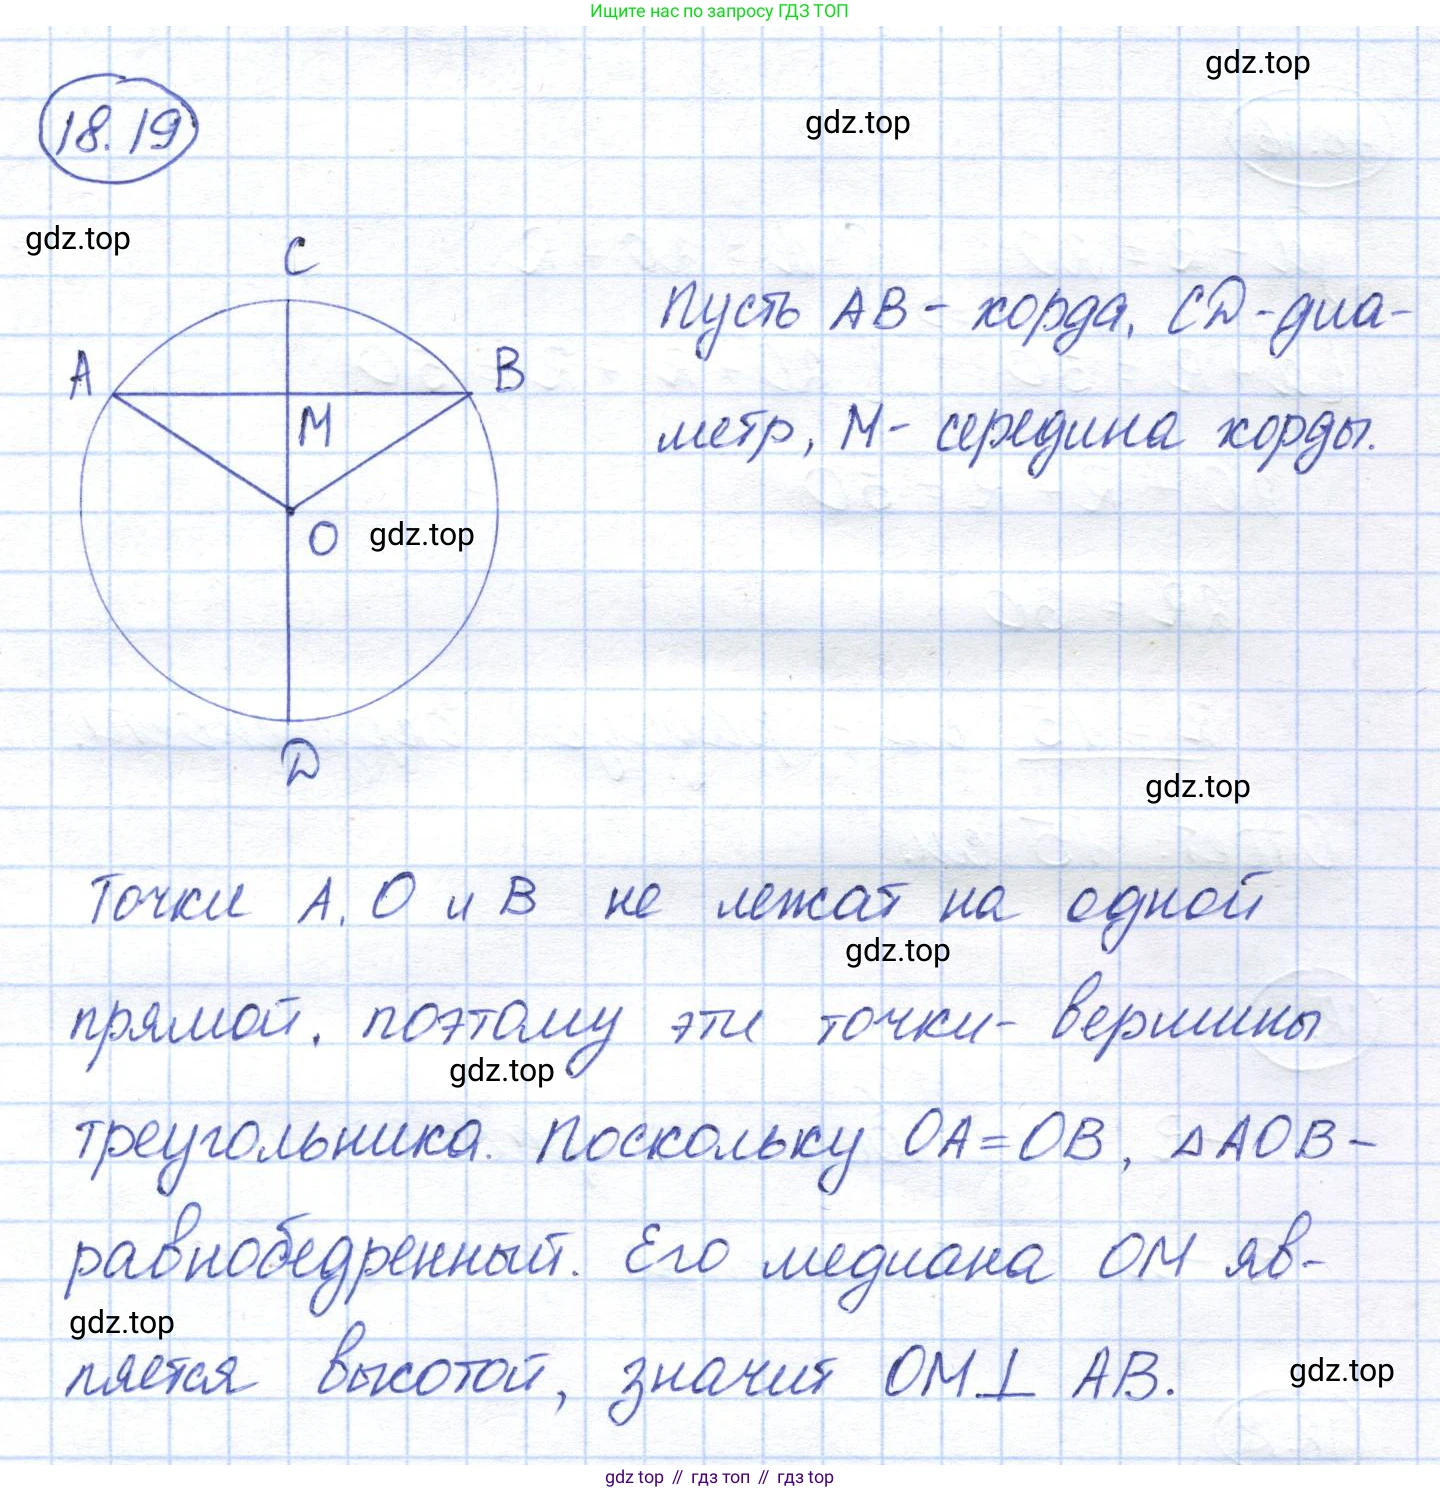 Ищите нас по запросу ГДЗ ТОП
gdz.top
gdz.top
18.19
gdz.top
C
Пусть AB - хорда, CD - диа-
A
B
M
метр, M - середина хорды.
O
gdz.top
D
gdz.top
Точки A, O и B не лежат на одной
gdz.top
прямой, поэтому эти точки - вершины
gdz.top
треугольника. Поскольку OA = OB, △AOB -
равнобедренный. Его медиана OM яв-
gdz.top
ляется высотой, значит OM ⊥ AB.
gdz.top
gdz top // гдз топ // gdz top